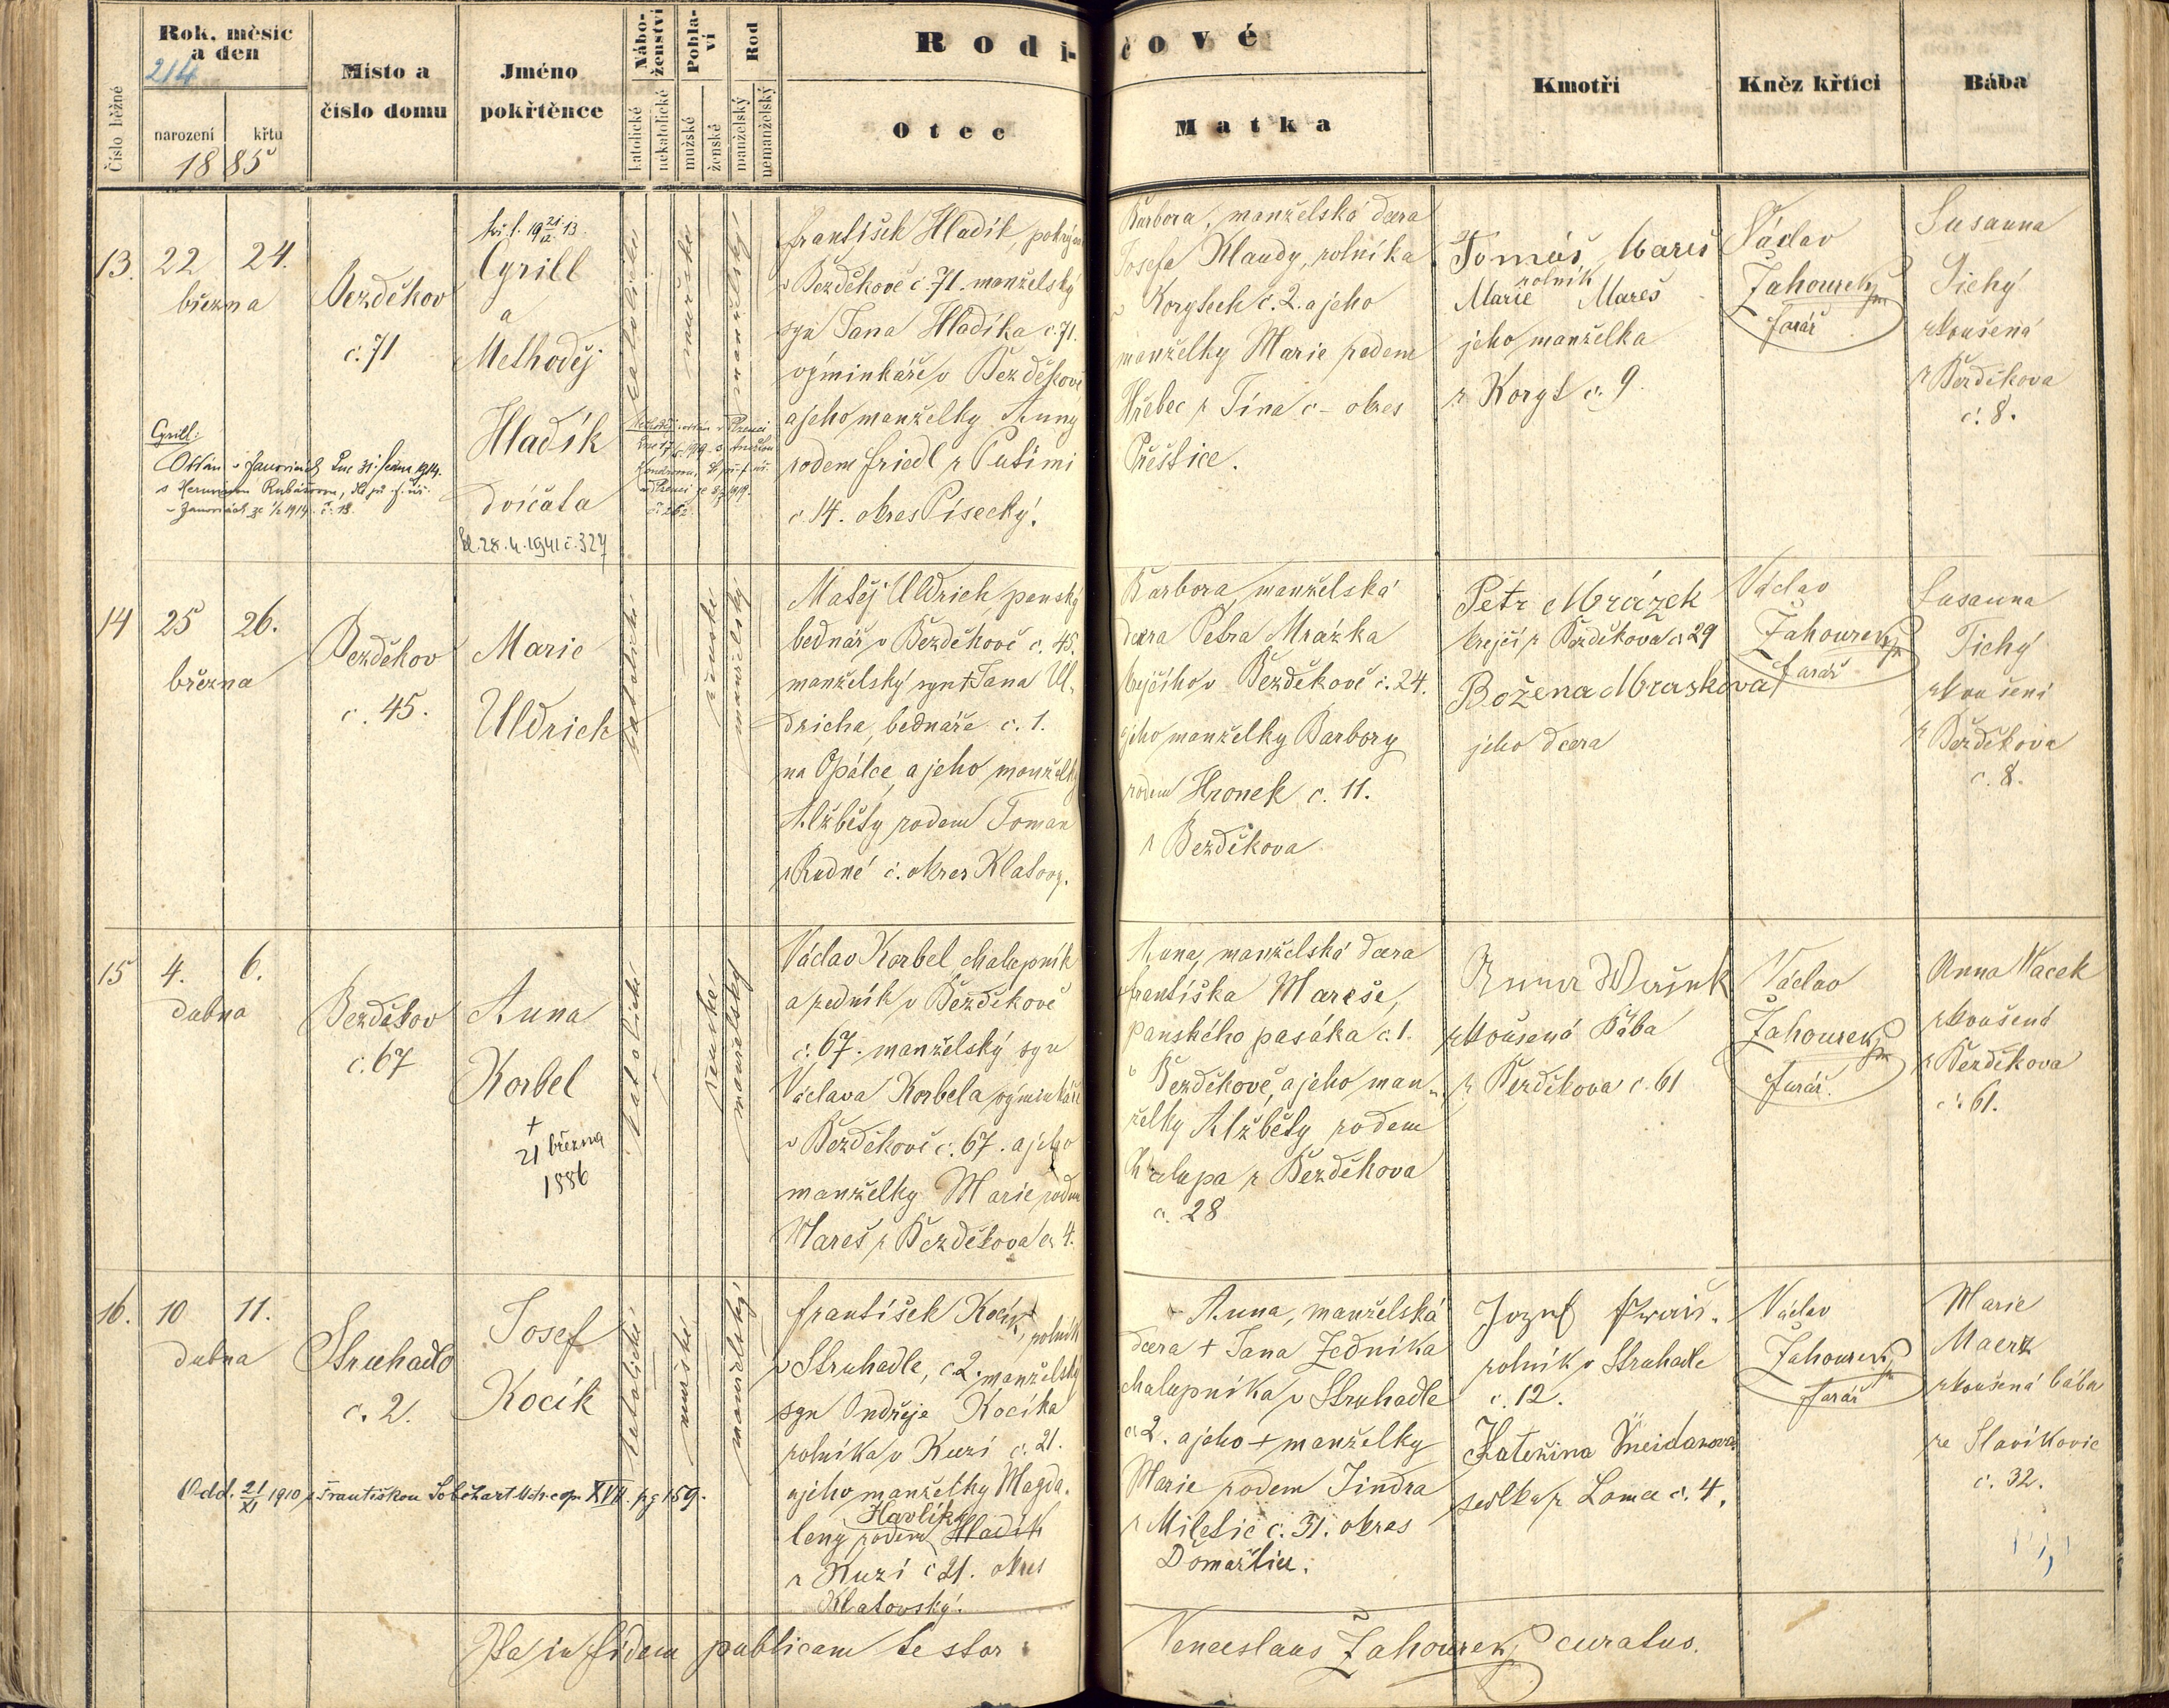 Číslo běžné
Rok, měsíc
a den
214
narození
křtu
1885
Místo a
číslo domu
Jméno
pokřtěnce
Nábo-
ženství
katolické
nekatolické
Pohla-
ví
mužské
ženské
Rod
manželský
nemanželský
Rodi-
čové
Otec
Matka
Kmotři
Kněz křtící
Bába
13.
22
24.
března
Bezděkov
č. 71
Cyrill
a
Methoděj
Hladík
dvíčata
28. 4. 1941 č. 327
Cyrill:
Oddán v Janovicích dne 31. ledna 1914.
katolické
mužské
manželský
František Hladík,
v Bezděkově č. 71. manželský
syn Jana Hladíka č. 71.
výminkáře v Bezděkově
a jeho manželky Anny
rodem Friedl z Putimi
č 14. okres Písecký.
Barbora, manželská dcera
Josefa Klaudy, rolníka
v Korytech č. 2. a jeho
manželky Marie rodem
Hřebec z Týna č – okres
Přeštice.
Tomáš Mareš
rolník
Marie Mareš
jeho manželka
z Koryt č. 9.
Václav
Zahourek
farář
Susanna
Tichý
zkoušená
z Bezděkova
č. 8.
14
25
26.
března
Bezděkov
č. 45.
Marie
Uldrich
katolické
ženské
manželský
Matěj Uldrich, panský
bednář v Bezděkově č. 45.
manželský syn † Jana Ul-
dricha, bednáře č. 1.
na Opálce, a jeho manželky
Alžběty rodem Toman
z Rudné č. okres Klatovy.
Barbora, manželská
dcera Petra Mrázka
krejčího v Bezděkově č. 24.
a jeho manželky Barbory
rodem Hronek č. 11.
z Bezděkova
Petr Mrázek
krejčí z Bezděkova č 29
Božena Mraskova
jeho dcera
Václav
Zahourek
farář
Susanna
Tichý
zkoušení
z Bezděkova
č. 8.
15
4.
6.
dubna
Bezděkov
č. 67
Anna
Korbel
†
21 března
1886
katolické
ženské
manželský
Václav Korbel, chalupník
a zedník v Bezděkově
č. 67. manželský syn
Václava Korbela výminkáře
v Bezděkově č. 67. a jeho
manželky Marie rodem
Mareš z Bezděkova č 4.
Anna, manželská dcera
Františka Mareše,
panského pasáka č. 1.
v Bezděkově, a jeho man-
želky Alžběty rodem
Chalupa z Bezděkova
č. 28
Anna
zkoušená Bába
z Bezděkova č. 61
Václav
Zahourek
farář.
Anna Wacek
zkoušená
z Bezděkova
č. 61.
16.
10
11.
dubna
Struhadlo
č. 2.
Josef
Kocík
katolické
mužské
manželský
Odd. 21/XI 1910 s Františkou XVII. pg 159.
František Kocík, rolník
v Struhadle, č 2. manželský
syn Ondřeje Kocíka
rolníka v Kuzí č. 21.
a jeho manželky Magda-
Havlík
leny rodem Hladík
z Kuzí č 21. okres
Klatovský.
Anna, manželská
dcera † Jana Zedníka
chalupníka v Struhadle
č 2. a jeho † manželky
Marie rodem Jindra
z Miletic č. 31. okres
Domažlice.
Jozef
rolník v Struhadle
č. 12.
Kateřina
sedlka z Loma č. 4.
Václav
Zahourek
farář
Marie
Maerz
zkoušená bába
ze Slavíkovic
č. 32.
Ita in fidem publicam testor
Venceslaus Zahourek, curatus.